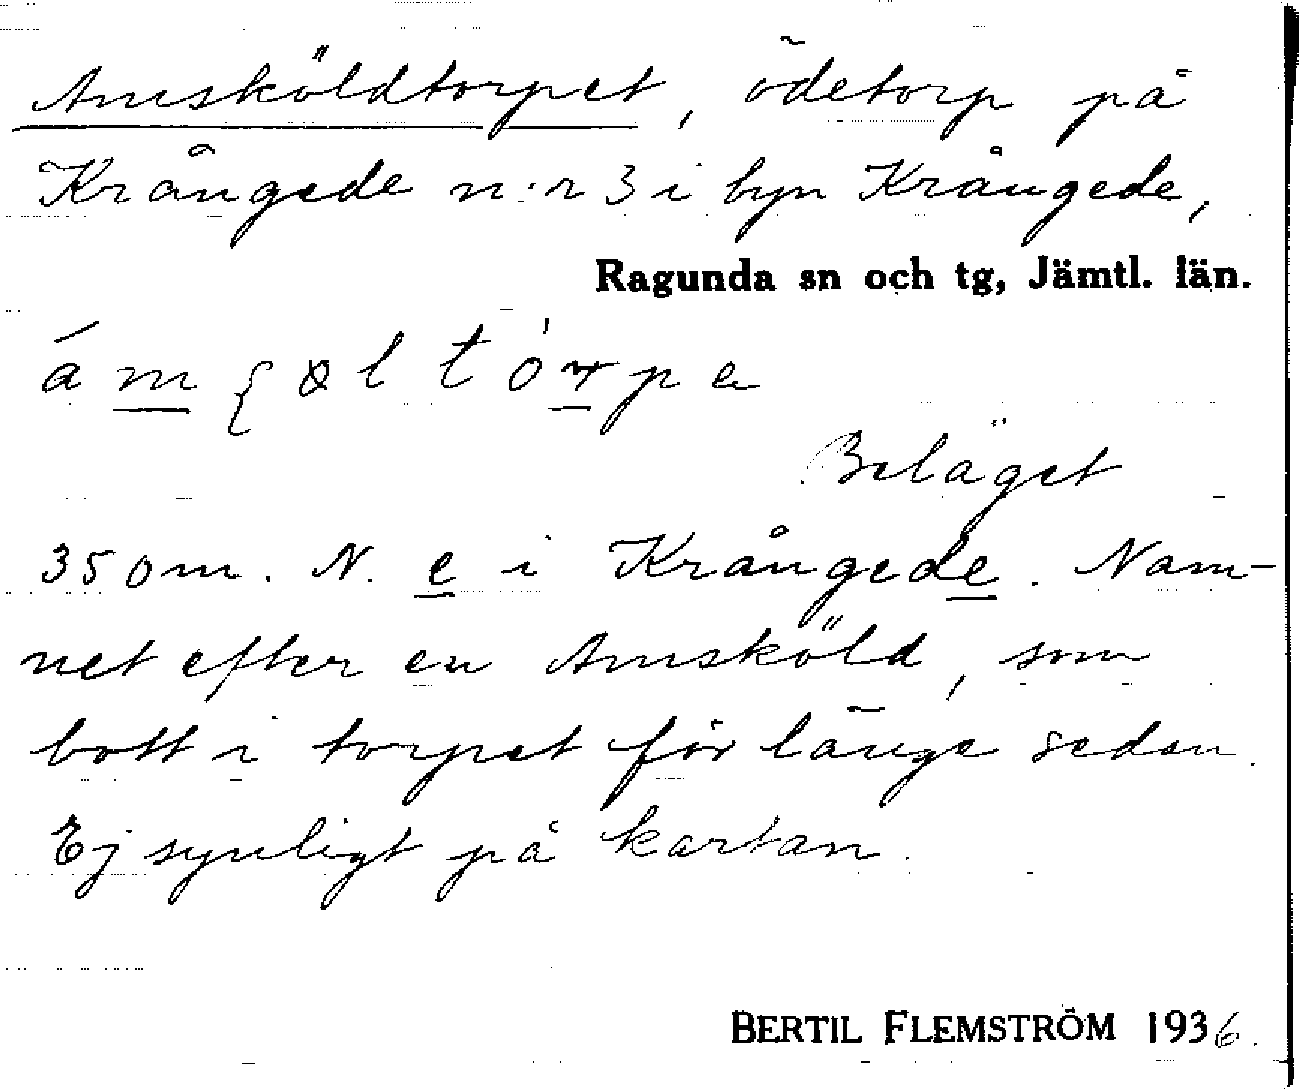 Amsköldtorpet, ödetorp på
Krångede n:r 3 i byn Krångede,
Ragunda sn och tg, Jämtl. län.
Beläget
350 m. N. e i Krångede. Nam-
net efter en Amsköld, som
bott i torpet för länge sedan.
Ej synligt på kartan.
BERTIL FLEMSTRÖM 1936.